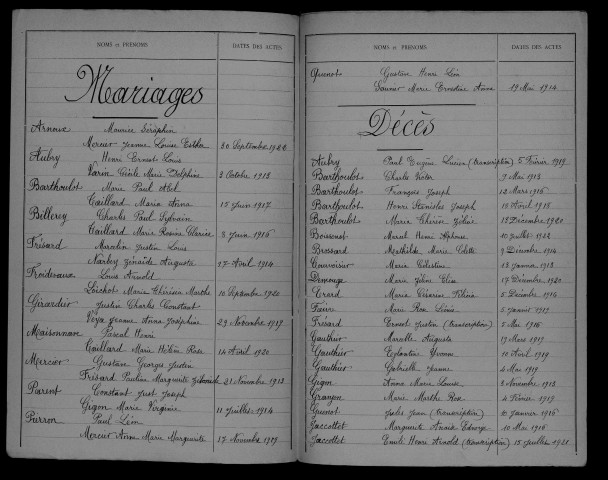 NOMS et PRÉNOMS DATES DES ACTES
Mariages
Arnoux Maurice Séraphin
Mercier Jeanne Louise Esther 30 Septembre 1922
Aubry Henri Ernest Louis
Varin Cécile Marie Delphine 3 Octobre 1913
Barthoulot Marie Paul Abel
Caillard Maria Anna 15 Juin 1917
Billerey Charles Paul Sylvain
Caillard Marie Rosina Clarisse 3 Juin 1916
Frésard Justin Louis
Narbey Zénaïde Augusta 17 Avril 1914
Froidevaux Louis Arnold
Loichot Marie Thérèsia Marthe 10 Septembre 1920
Girardier Justin Charles Constant
Voya Jeanne Anna Joséphine 29 Novembre 1919
Maisonnau Pascal Henri
Caillard Marie Hélène Rose 14 Avril 1920
Mercier Gustave Georges Justin
Frésard Pauline Marguerite 21 Novembre 1913
Parent Constant Just Joseph
Gigon Marie Virginie 11 Juillet 1914
Perron Paul Léon
Mercier Anna Marie Marguerite 17 Novembre 1919
NOMS et PRÉNOMS DATES DES ACTES
Quenot Gustave Henri Léon
Saunier Marie Ernestine Anna 19 Mai 1914
Décès
Aubry Paul Eugène Lucien (transcription) 5 Février 1919
Barthoulot Charles Victor 9 Mai 1913
Barthoulot François Joseph 12 Mars 1916
Barthoulot Henri Stanislas Joseph 12 Avril 1915
Barthoulot Marie Thérèse Zélie 13 Décembre 1920
Boissenot Marcel Henri Alphonse 10 Juillet 1922
Brossard Mathilde Marie Colette 9 Décembre 1914
Courvoisier Marie Célestine 13 Janvier 1913
Marie Julie Elise 17 Décembre 1920
Erard Marie Césarine 5 Décembre 1914
Faivre Marie Rose Lina 5 Janvier 1917
Frésard Ernest Justin (transcription) 5 Mai 1916
Gauthier Marcelle Augusta 19 Mars 1919
Gauthier Yvonne 10 Avril 1919
Gauthier Gabrielle Jeanne 4 Mai 1919
Gigon Anna Marie Louise 2 Novembre 1913
Granjon Marie Marthe Rose 4 Février 1919
Quenot Jules Jean (transcription) 8 Janvier 1916
Jaccottet Marguerite Annie Edwige 10 Mai 1916
Jaccottet Emile Henri Arnold (transcription) 15 Juillet 1921